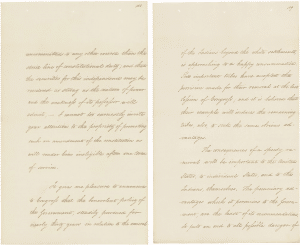 to any other course than the
strict line of constitutional duty, and that
the securities for this independence may be
rendered as strong as the nature of power
and the weakness of its possessor will
admit, I cannot too earnestly invite
your attention to the propriety of promoting
such an amendment of the constitution as
will render him ineligible after one term
of service.
It gives me pleasure to announce
to Congress that the benevolent policy of
the Government, steadily pursued for
nearly thirty years in relation to the removal
of the Indians beyond the white settlements
is approaching to a happy consummation.
Two important tribes have accepted the
provision made for their removal at the last
session of Congress, and it is believed that
their example will induce the remaining
tribes, also, to seek the same obvious ad-
vantages.
The consequences of a speedy re-
moval will be important to the United
States, to individual States, and to the
Indians themselves. The pecuniary ad-
vantages which it promises to the govern-
ment are the least of its recommendations.
It puts an end to all possible danger of